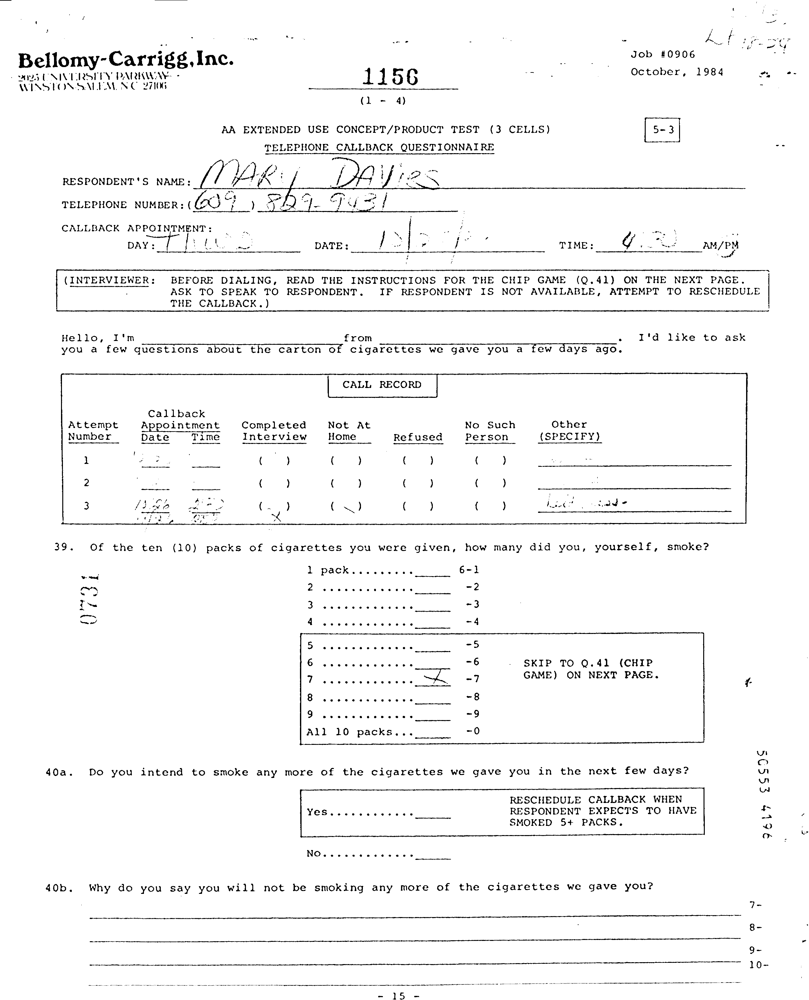 Bellomy-Carrigg, Inc.
2025 UNIVERSITY PARKWAY
WINSTON SALEM, NC 27106
Job #0906
October, 1984
1156
(1 - 4)
AA EXTENDED USE CONCEPT/PRODUCT TEST (3 CELLS)
5-3
TELEPHONE CALLBACK QUESTIONNAIRE
RESPONDENT'S NAME: MARY DAVIES
TELEPHONE NUMBER: (609) 829-9431
CALLBACK APPOINTMENT:
DAY: THURS DATE: TIME: 4:30 AM/PM
(INTERVIEWER: BEFORE DIALING, READ THE INSTRUCTIONS FOR THE CHIP GAME (Q.41) ON THE NEXT PAGE.
ASK TO SPEAK TO RESPONDENT. IF RESPONDENT IS NOT AVAILABLE, ATTEMPT TO RESCHEDULE
THE CALLBACK.)
Hello, I'm ____ from ____. I'd like to ask
you a few questions about the carton of cigarettes we gave you a few days ago.
CALL RECORD
Callback
Attempt Appointment Completed Not At No Such Other
Number Date Time Interview Home Refused Person (SPECIFY)
1 ( ) ( ) ( ) ( )
2 ( ) ( ) ( ) ( )
3 ( ) ( ) ( ) ( )
39. Of the ten (10) packs of cigarettes you were given, how many did you, yourself, smoke?
1 pack.........____ 6-1
2 .............____ -2
3 .............____ -3
4 .............____ -4
5 .............____ -5
6 .............____ -6 SKIP TO Q.41 (CHIP
7 .............X -7 GAME) ON NEXT PAGE.
8 .............____ -8
9 .............____ -9
All 10 packs...____ -0
0731
40a. Do you intend to smoke any more of the cigarettes we gave you in the next few days?
RESCHEDULE CALLBACK WHEN
Yes............____ RESPONDENT EXPECTS TO HAVE
SMOKED 5+ PACKS.
No.............____
50553 4196
40b. Why do you say you will not be smoking any more of the cigarettes we gave you?
7-
8-
9-
10-
- 15 -